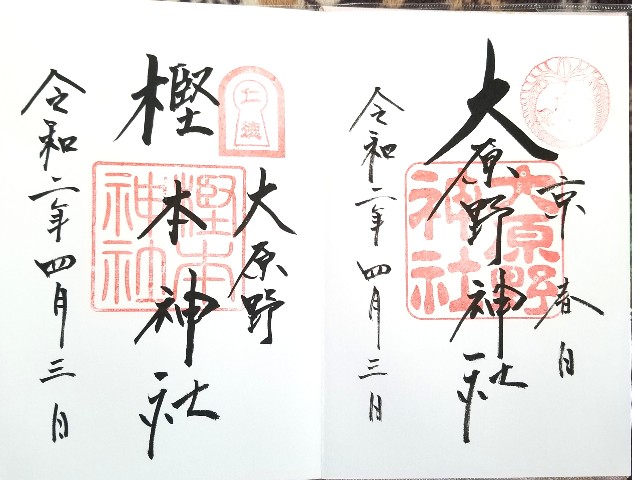 京春日
大原野神社
大原野神社
令和二年四月三日
大原野
樫本神社
樫本神社
令和二年四月三日